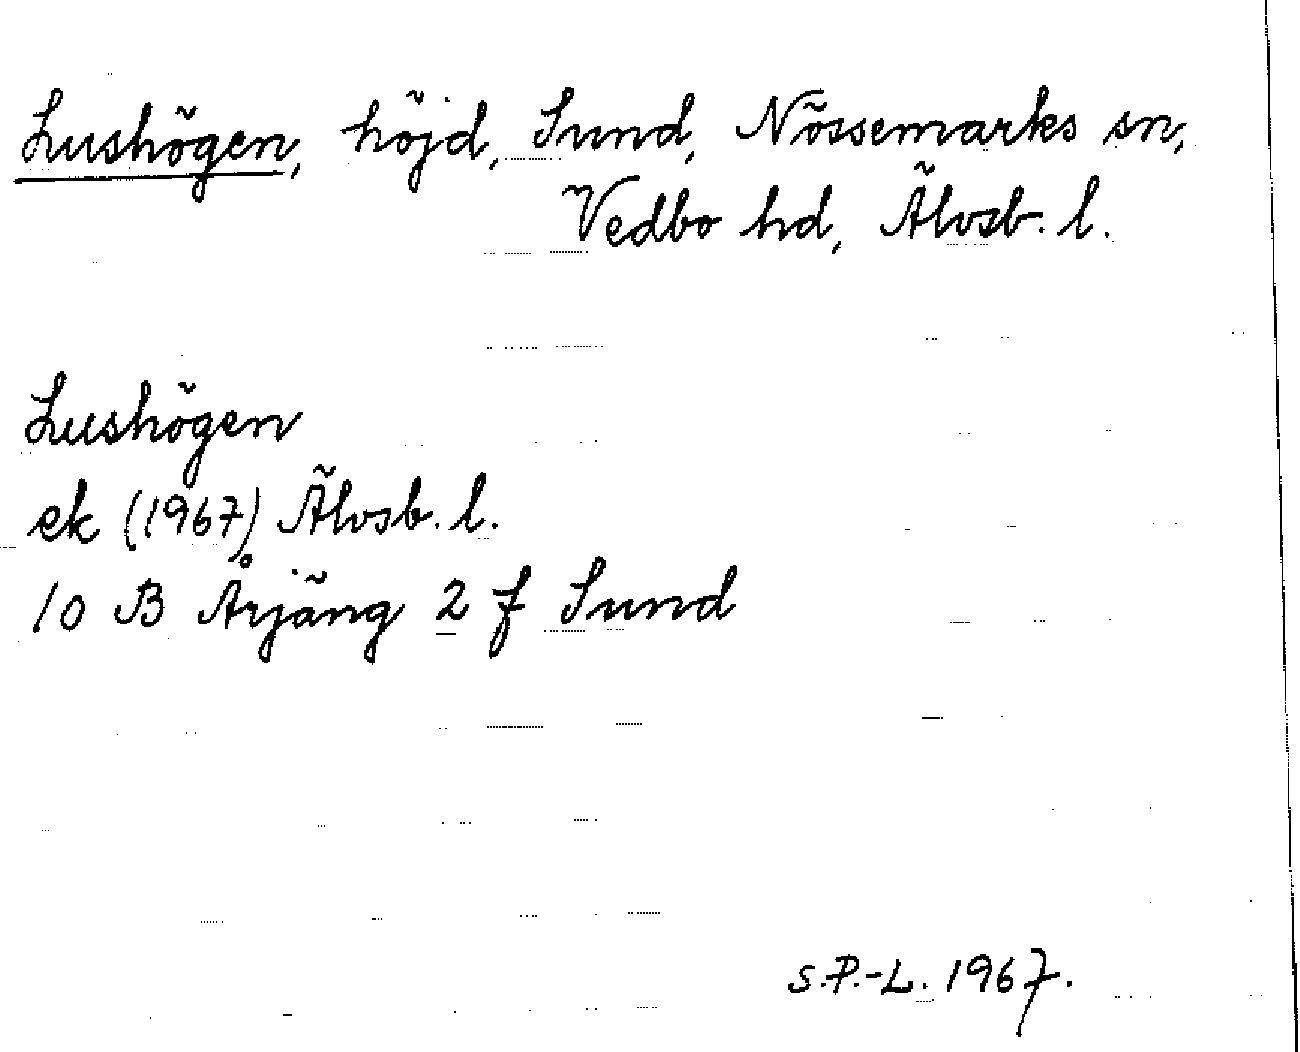 Lushögen, höjd, Sund, Nössemarks sn,
Vedbo hd, Älvsb. l.
Lushögen
ek (1967) Älvsb. l.
10 B Årjäng 2 f Sund
S.P.-L. 1967.